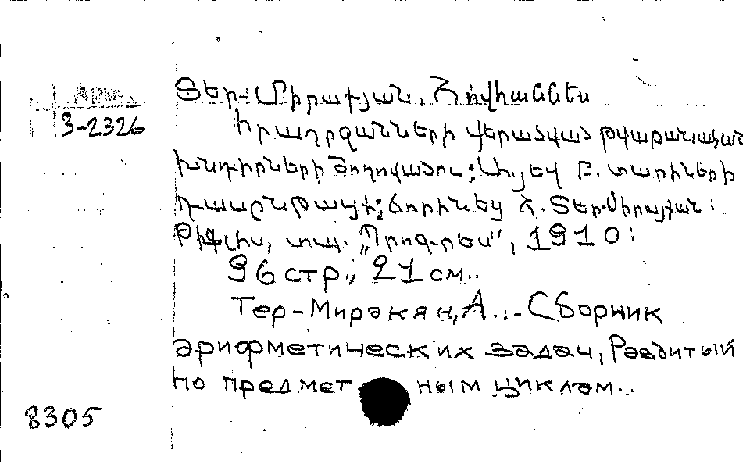 Арм.
3-2326
Տեր-Միրաքյան, Հովհաննես
Իրադրգաններերի վերածված թվաբանական
խնդիրների ժողովածու: Ա. և Բ. տարիների
դասընթաց: Հորինեց Հ. Տեր-Միրաքյան:
Թիֆլիս, տպ. „Պրոգրես", 1910:
96 стр., 21 см.
Тер-Миракян, А. - Сборник
арифметических задач, Разбитый
по предметным циклам.
8305